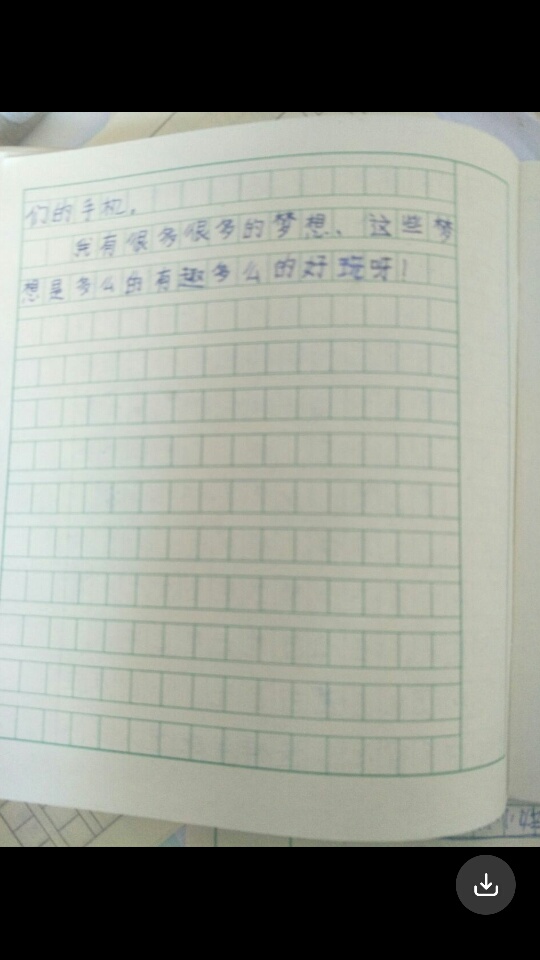 们的手机。
我有很多很多的梦想、这些梦
想是多么的有趣多么的好玩呀！